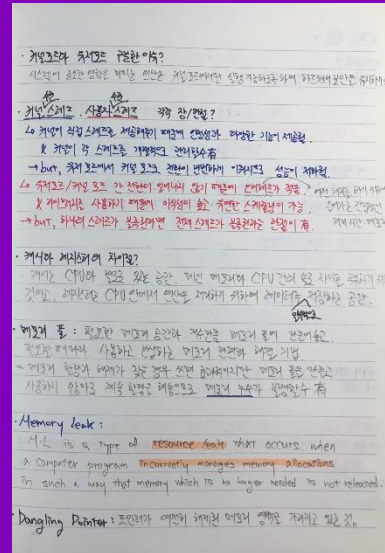 · 커널모드와 유저모드 구분한 이유?
시스템에 중요한 영향을 미치는 연산은 커널모드에서만 실행가능하도록 하여 하드웨어 보안을 유지하기
· 커널 스레드, 사용자 스레드 각각 장/단점?
↳ 커널이 직접 스레드를 제공해주기 때문에 안정성과 다양한 기능이 제공됨.
& 커널이 각 스레드를 개별적으로 관리할 수 有
→ but, 유저 모드에서 커널 모드로 전환이 빈번하게 이뤄지므로 성능이 저하됨.
↳ 유저모드/커널 모드 간 전환이 일어나지 않기 때문에 오버헤드가 적음.
& 라이브러리를 사용하기 때문에 이식성이 높고 유연한 스케줄링이 가능.
→ but, 하나의 스레드가 블록되면 전체 스레드가 블록된다는 단점이 有.
· 캐시와 레지스터의 차이점?
· 캐시는 CPU와 별도로 있는 공간, 메인 메모리와 CPU 간의 속도 차이를 극복하기 위
것이고, 레지스터는 CPU 안에서 연산을 처리하기 위하여 데이터를 저장하는 공간.
· 메모리 풀 : 필요한 메모리 공간과 개수만큼 메모리 풀에 만들어놓고,
필요할 때마다 사용하고 반납하는 메모리 단편화 해결 기법
→ 메모리 할당과 해제가 잦은 경우 쓰면 효과적이지만 메모리 풀을 만들고
사용하지 않아도 계속 할당된 채 있으므로 메모리 누수가 발생할 수 有
· Memory leak :
: M.L is a type of resource leak that occurs when
a computer program incorrectly manages memory allocations
in such a way that memory which is no longer needed is not released.
· Dangling Pointer : 포인터가 여전히 해제된 메모리 영역을 가리키고 있는 것.